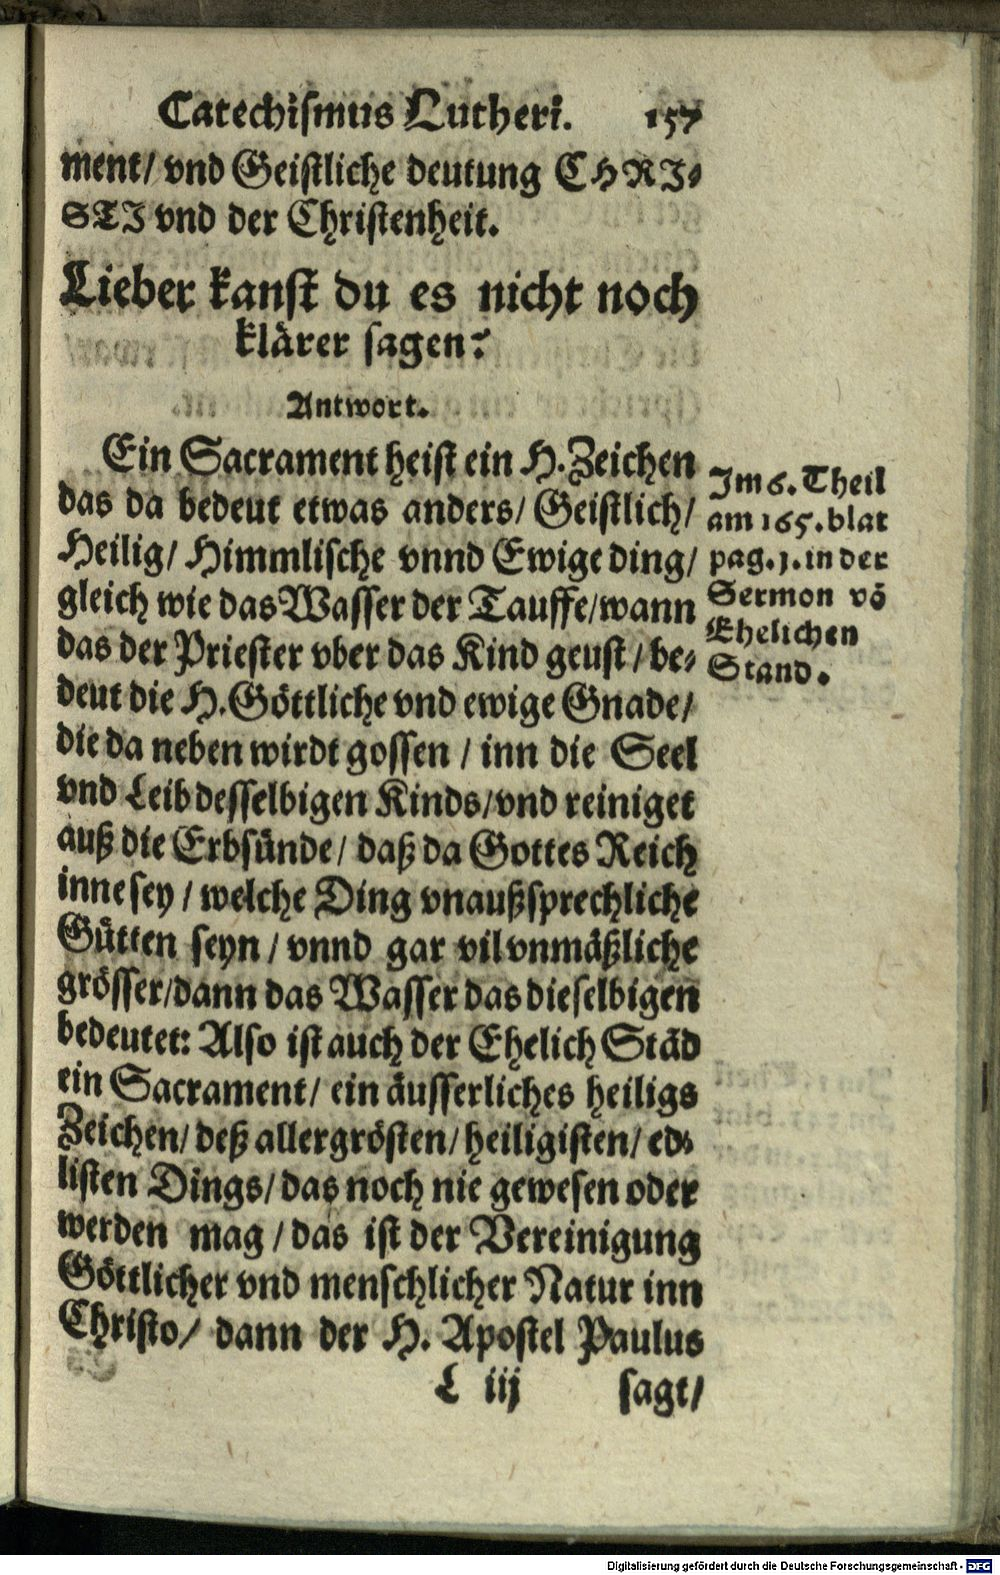 Catechismus Lutheri. 157
ment/ vnd Geistliche deutung CHRI-
STI vnd der Christenheit.
Lieber kanst du es nicht noch
klärer sagen?
Antwort.
Ein Sacrament heist ein H. Zeichen
das da bedeut etwas anders/ Geistlich/
Heilig/ Himmlische vnnd Ewige ding/
gleich wie das Wasser der Tauffe/wann
das der Priester vber das Kind geust/ be-
deut die H. Göttliche vnd ewige Gnade/
die da neben wirdt gossen / inn die Seel
vnd Leib desselbigen Kinds/vnd reiniget
auß die Erbsünde/ daß da Gottes Reich
inne sey / welche Ding vnaußsprechliche
Gütten seyn / vnnd gar vil vnmäßliche
grösser/dann das Wasser das dieselbigen
bedeutet: Also ist auch der Ehelich Städ
ein Sacrament/ ein äusserliches heiligs
Zeichen/ deß allergrösten/heiligisten/ ed-
listen Dings/das noch nie gewesen oder
werden mag / das ist der Vereinigung
Göttlicher vnd menschlicher Natur inn
Christo/ dann der H. Apostel Paulus
L iij sagt/
Im 6. Theil
am 165. blat
pag. 1. in der
Sermon vō
Ehelichen
Stand.
Digitalisierung gefördert durch die Deutsche Forschungsgemeinschaft - DFG